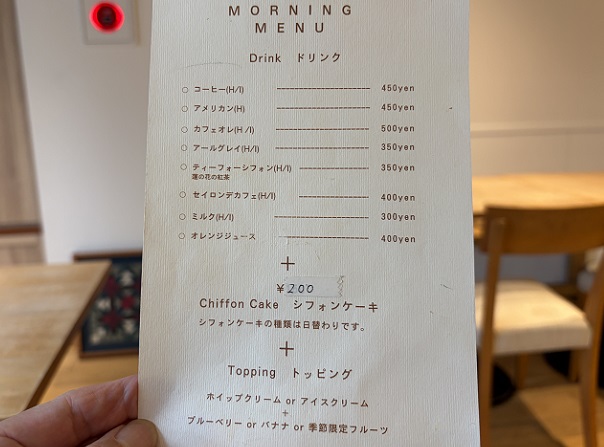 MORNING
MENU
Drink ドリンク
○ コーヒー(H/I) ---------------------- 450yen
○ アメリカン(H) ---------------------- 450yen
○ カフェオレ(H /I) ---------------------- 500yen
○ アールグレイ(H/I) ---------------------- 350yen
○ ティーフォーシフォン(H/I) ---------------- 350yen
蓮の花の紅茶
○ セイロンデカフェ(H/I) ---------------- 400yen
○ ミルク(H/I) ---------------------- 300yen
○ オレンジジュース ---------------------- 400yen
+
¥200
Chiffon Cake シフォンケーキ
シフォンケーキの種類は日替わりです。
+
Topping トッピング
ホイップクリーム or アイスクリーム
+
ブルーベリー or バナナ or 季節限定フルーツ